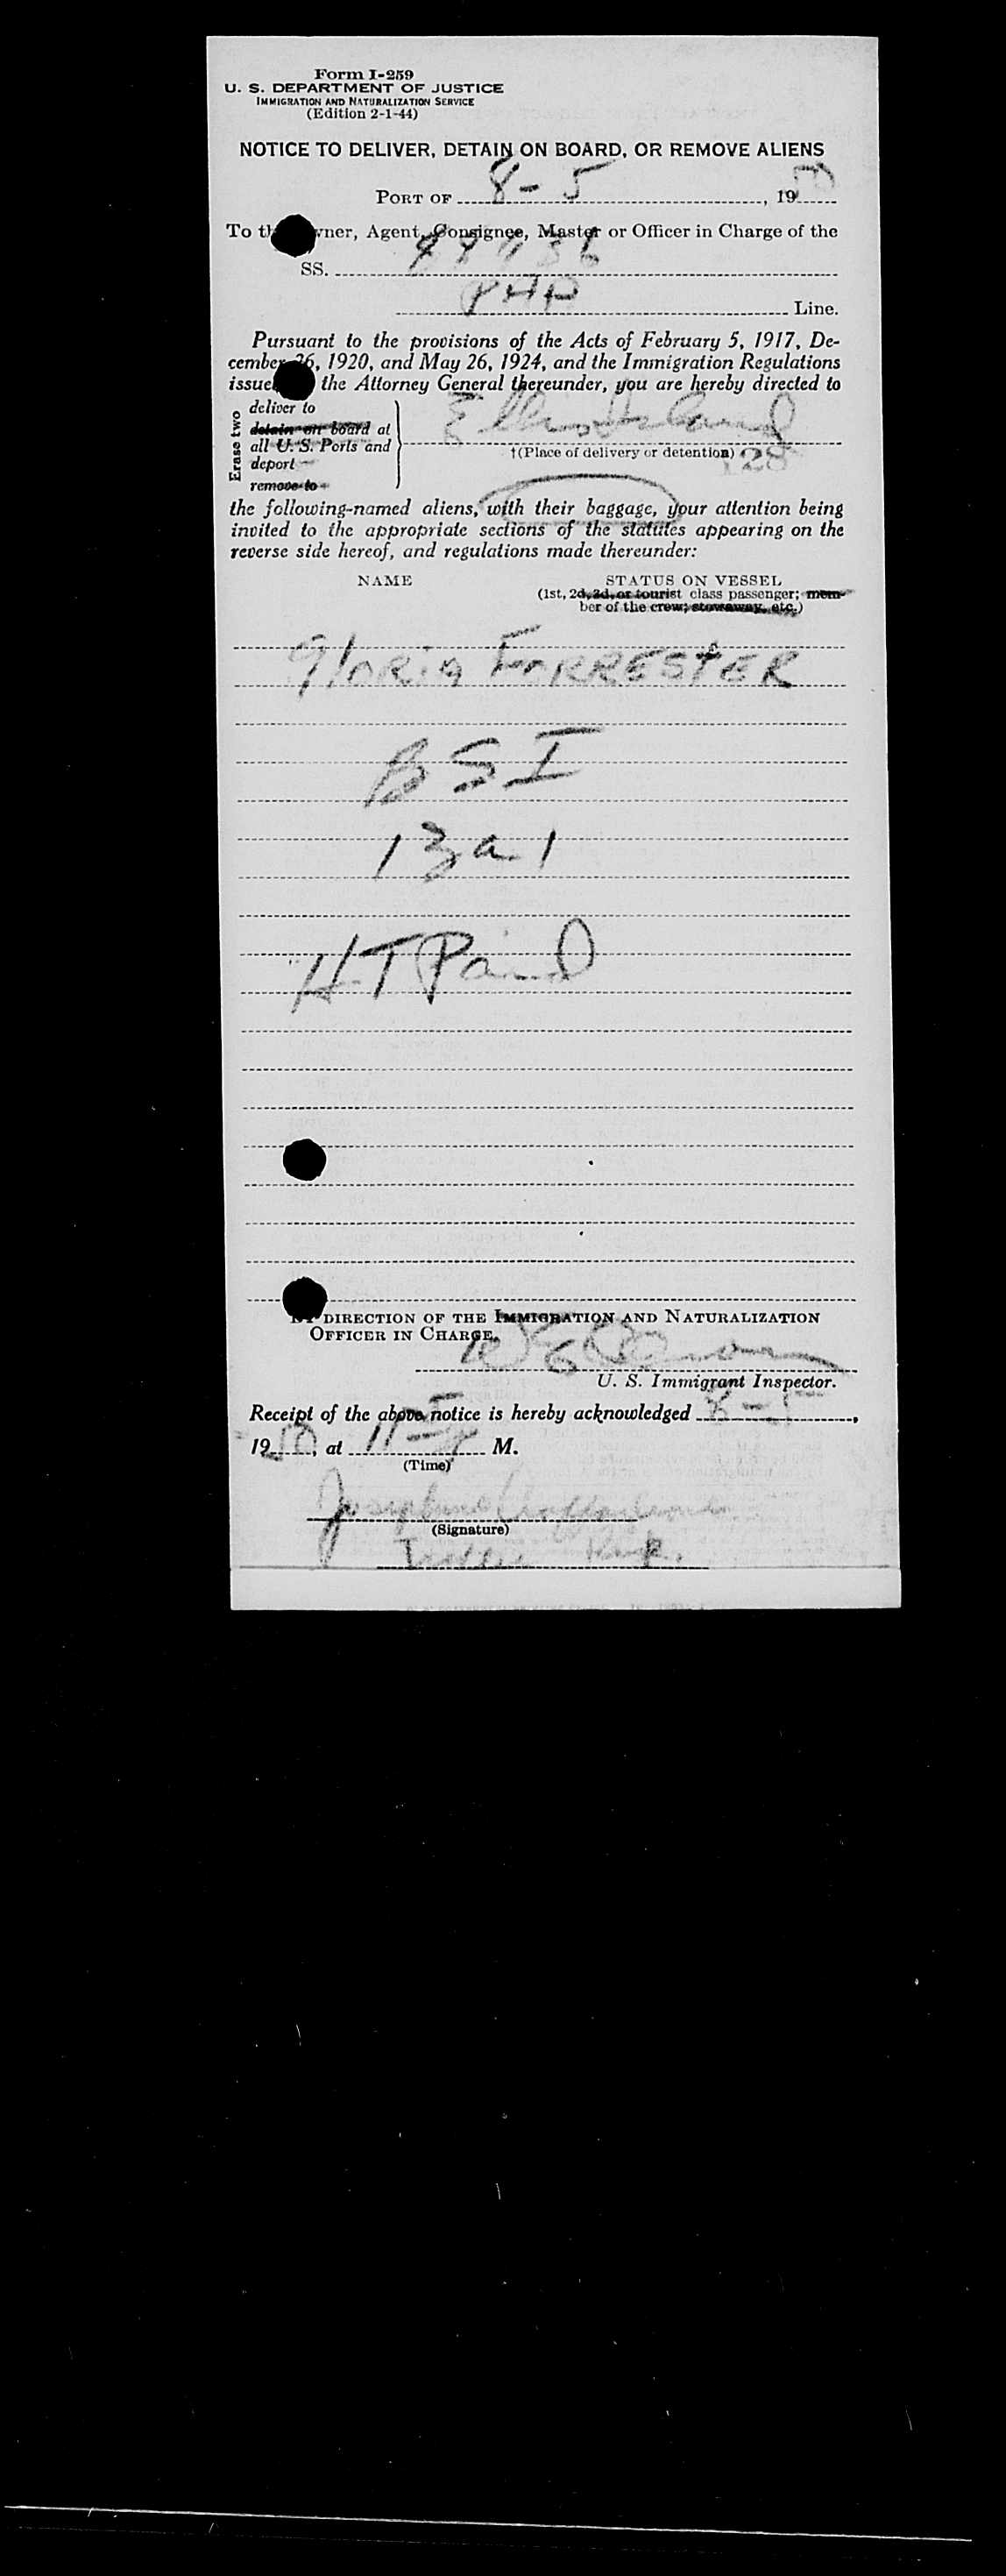 Form I-259
U. S. DEPARTMENT OF JUSTICE
IMMIGRATION AND NATURALIZATION SERVICE
(Edition 2-1-44)
NOTICE TO DELIVER, DETAIN ON BOARD, OR REMOVE ALIENS
PORT OF 8-5, 1950
To th wner, Agent, Consignee, Master or Officer in Charge of the
SS.
Line.
Pursuant to the provisions of the Acts of February 5, 1917, De-
cember 26, 1920, and May 26, 1924, and the Immigration Regulations
issue the Attorney General thereunder, you are hereby directed to
Erase two
deliver to
detain on board at
all U. S. Ports and
deport
remove to
Ellis Island
†(Place of delivery or detention) 28
the following-named aliens, with their baggage, your attention being
invited to the appropriate sections of the statutes appearing on the
reverse side hereof, and regulations made thereunder:
NAME
STATUS ON VESSEL
(1st, 2d, 3d, or tourist class passenger; mem-
ber of the crew; stowaway, etc.)
Gloria FORRESTER
BSI
13a1
H.T Paid
BY DIRECTION OF THE IMMIGRATION AND NATURALIZATION
OFFICER IN CHARGE.
U. S. Immigrant Inspector.
Receipt of the above notice is hereby acknowledged 8-5,
1950, at M.
(Time)
Josephine
(Signature)